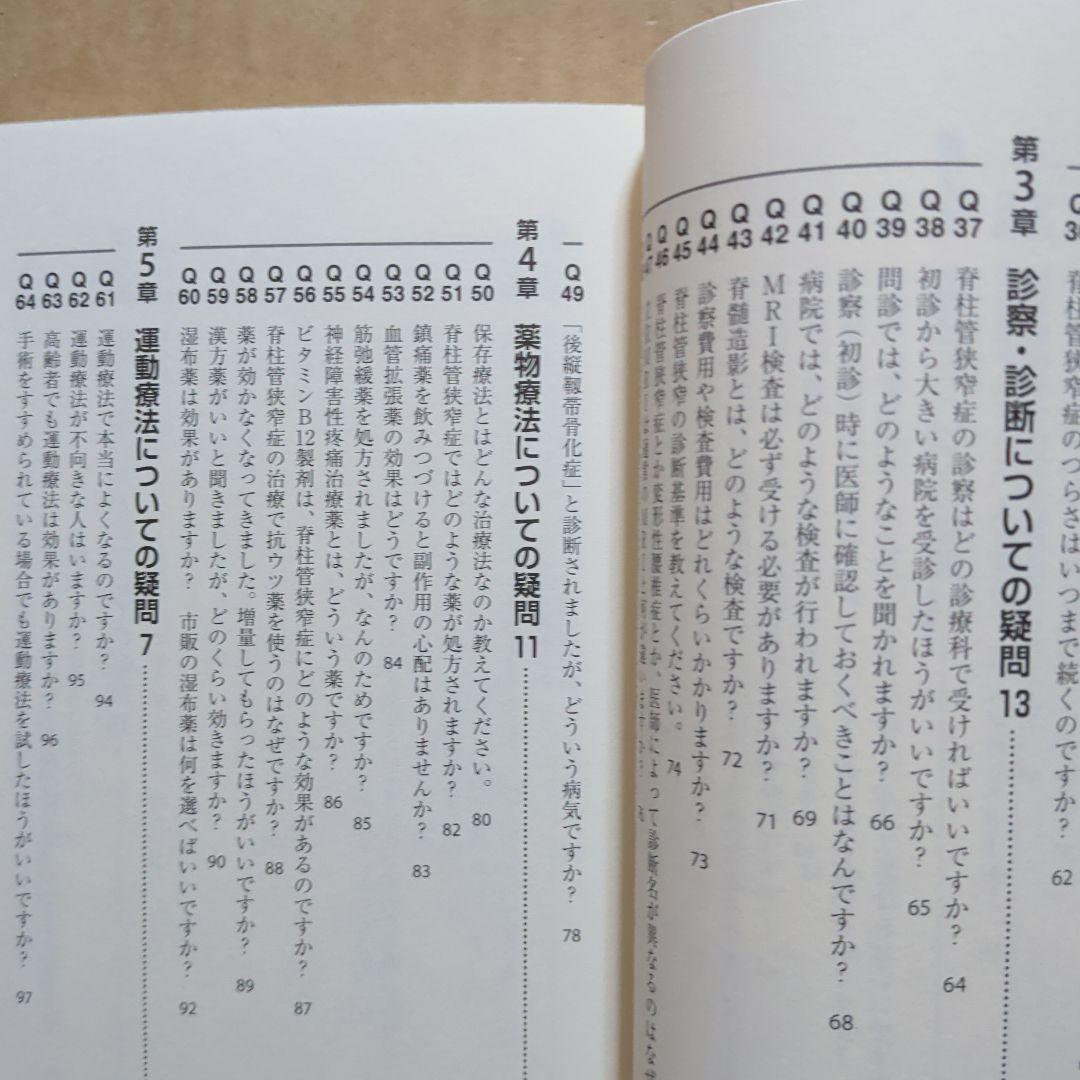 Q36
のつらさはいつまで続くのですか? 62
第3章 診察・診断についての疑問 13
Q37 脊柱管狭窄症の診察はどの診療科で受ければいいですか? 64
Q38 初診から大きい病院を受診したほうがいいですか? 65
Q39 問診では、どのようなことを聞かれますか? 66
Q40 診察(初診)時に医師に確認しておくべきことはなんですか? 68
Q41 病院では、どのような検査が行われますか? 69
Q42 MRI検査は必ず受ける必要がありますか? 71
Q43 脊髄造影とは、どのような検査ですか? 72
Q44 診察費用や検査費用はどれくらいかかりますか? 73
Q45 脊柱管狭窄症の診断基準を教えてください。 74
Q46 脊柱管狭窄症とか変形性腰椎症とか、医師によって診断名が異なるのはなぜ
Q47
Q49 「後縦靱帯骨化症」と診断されましたが、どういう病気ですか? 78
第4章 薬物療法についての疑問 11
Q50 保存療法とはどんな治療法なのか教えてください。 80
Q51 脊柱管狭窄症ではどのような薬が処方されますか? 82
Q52 鎮痛薬を飲みつづけると副作用の心配はありませんか? 83
Q53 血管拡張薬の効果はどうですか? 84
Q54 筋弛緩薬を処方されましたが、なんのためですか? 85
Q55 神経障害性疼痛治療薬とは、どういう薬ですか? 86
Q56 ビタミンB12製剤は、脊柱管狭窄症にどのような効果があるのですか? 87
Q57 脊柱管狭窄症の治療で抗ウツ薬を使うのはなぜですか? 88
Q58 薬が効かなくなってきました。増量してもらったほうがいいですか? 89
Q59 漢方薬がいいと聞きましたが、どのくらい効きますか? 90
Q60 湿布薬は効果がありますか? 市販の湿布薬は何を選べばいいですか? 92
第5章 運動療法についての疑問 7
Q61 運動療法で本当によくなるのですか? 94
Q62 運動療法が不向きな人はいますか? 95
Q63 高齢者でも運動療法は効果がありますか? 96
Q64 手術をすすめられている場合でも運動療法を試したほうがいいですか? 97